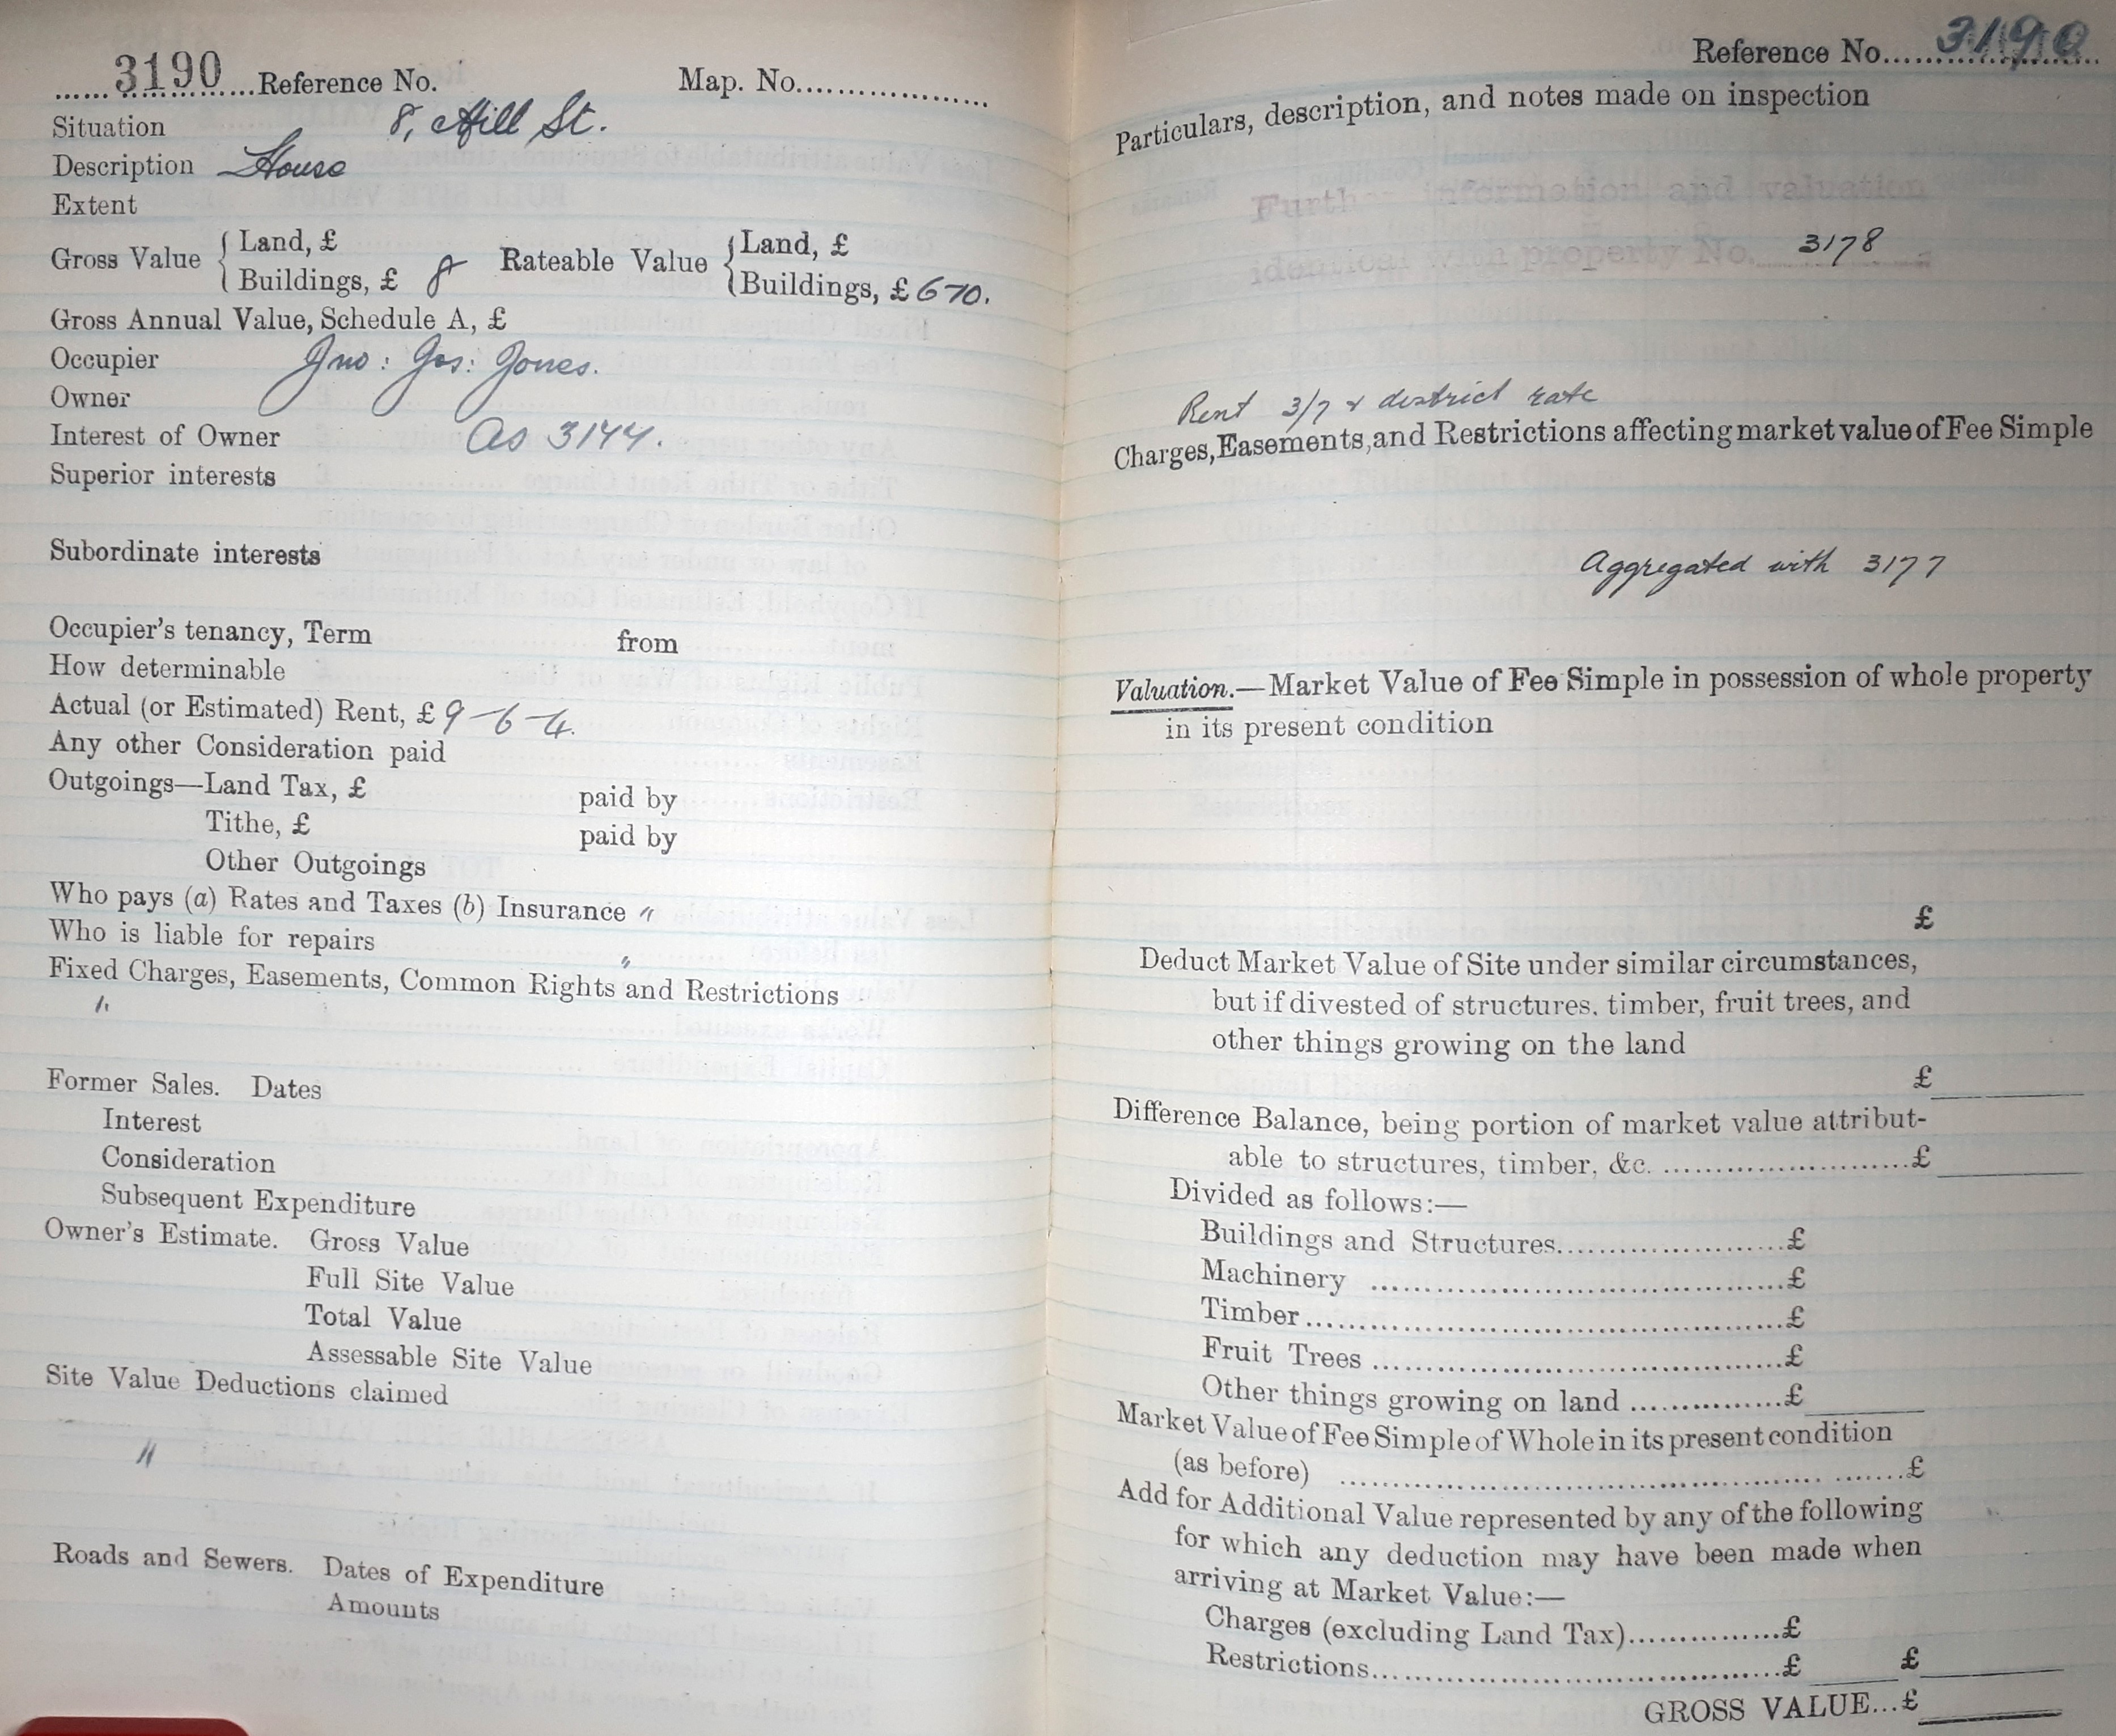 3190 Reference No. Map. No.
Situation 8, Hill St.
Description House
Extent
Gross Value { Land, £ Rateable Value { Land, £
Buildings, £ 8 Buildings, £ 670.
Gross Annual Value, Schedule A, £
Occupier Jno: Jos: Jones.
Owner
Interest of Owner As 3144.
Superior interests
Subordinate interests
Occupier's tenancy, Term from
How determinable
Actual (or Estimated) Rent, £ 9-6-4.
Any other Consideration paid
Outgoings—Land Tax, £ paid by
Tithe, £ paid by
Other Outgoings
Who pays (a) Rates and Taxes (b) Insurance "
Who is liable for repairs "
Fixed Charges, Easements, Common Rights and Restrictions
"
Former Sales. Dates
Interest
Consideration
Subsequent Expenditure
Owner's Estimate. Gross Value
Full Site Value
Total Value
Assessable Site Value
Site Value Deductions claimed
"
Roads and Sewers. Dates of Expenditure
Amounts
Reference No. 3190
Particulars, description, and notes made on inspection
Further information and valuation
identical with property No. 3178
Rent 3/7 & district rate
Charges, Easements, and Restrictions affecting market value of Fee Simple
Aggregated with 3177
Valuation.—Market Value of Fee Simple in possession of whole property
in its present condition
£
Deduct Market Value of Site under similar circumstances,
but if divested of structures, timber, fruit trees, and
other things growing on the land
£
Difference Balance, being portion of market value attribut-
able to structures, timber, &c. £
Divided as follows:—
Buildings and Structures £
Machinery £
Timber £
Fruit Trees £
Other things growing on land £
Market Value of Fee Simple of Whole in its present condition
(as before) £
Add for Additional Value represented by any of the following
for which any deduction may have been made when
arriving at Market Value:—
Charges (excluding Land Tax) £
Restrictions £ £
GROSS VALUE...£